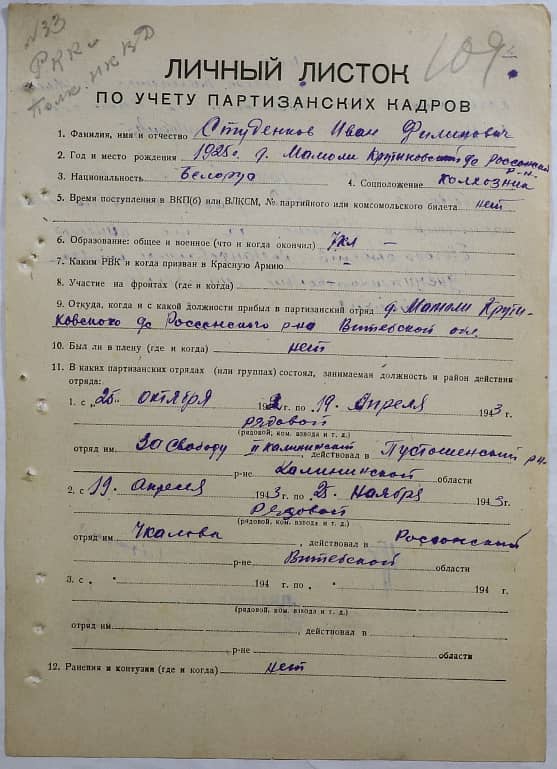 N33
РККА
Полк. НКВД
109
ЛИЧНЫЙ ЛИСТОК
ПО УЧЕТУ ПАРТИЗАНСКИХ КАДРОВ
1. Фамилия, имя и отчество Студенков Иван Филипович
2. Год и место рождения 1925г. д. Мамоли Крутиковский с/с Россонский
р-н.
3. Национальность Белорус 4. Соцположение колхозник
5. Время поступления в ВКП(б) или ВЛКСМ, № партийного или комсомольского билета нет
6. Образование: общее и военное (что и когда окончил) 7кл —
7. Каким РВК и когда призван в Красную Армию —
8. Участие на фронтах (где и когда)
9. Откуда, когда и с какой должности прибыл в партизанский отряд д. Мамоли Крути-
ковского с/с Россонского р-на Витебской обл.
10. Был ли в плену (где и когда) нет
11. В каких партизанских отрядах (или группах) состоял, занимаемая должность и район действия
отряда:
1. с „25" октября 1942 г. по „19" Апреля 1943 г.
рядовой
(рядовой, ком. взвода и т. д.)
отряд им. За Свободу II Калининский действовал в Пустошенский р-н.
р-не Калининской области
2. с „19" Апреля 1943 г. по „25" Ноября 1943 г.
Рядовой
(рядовой, ком. взвода и т. д.)
отряд им. Чкалова, действовал в Россонский
р-не Витебской области
3. с „ " 194 г. по „ " 194 г.
(рядовой, ком. взвода и т. д.)
отряд им. , действовал в
р-не области
12. Ранения и контузии (где и когда) нет